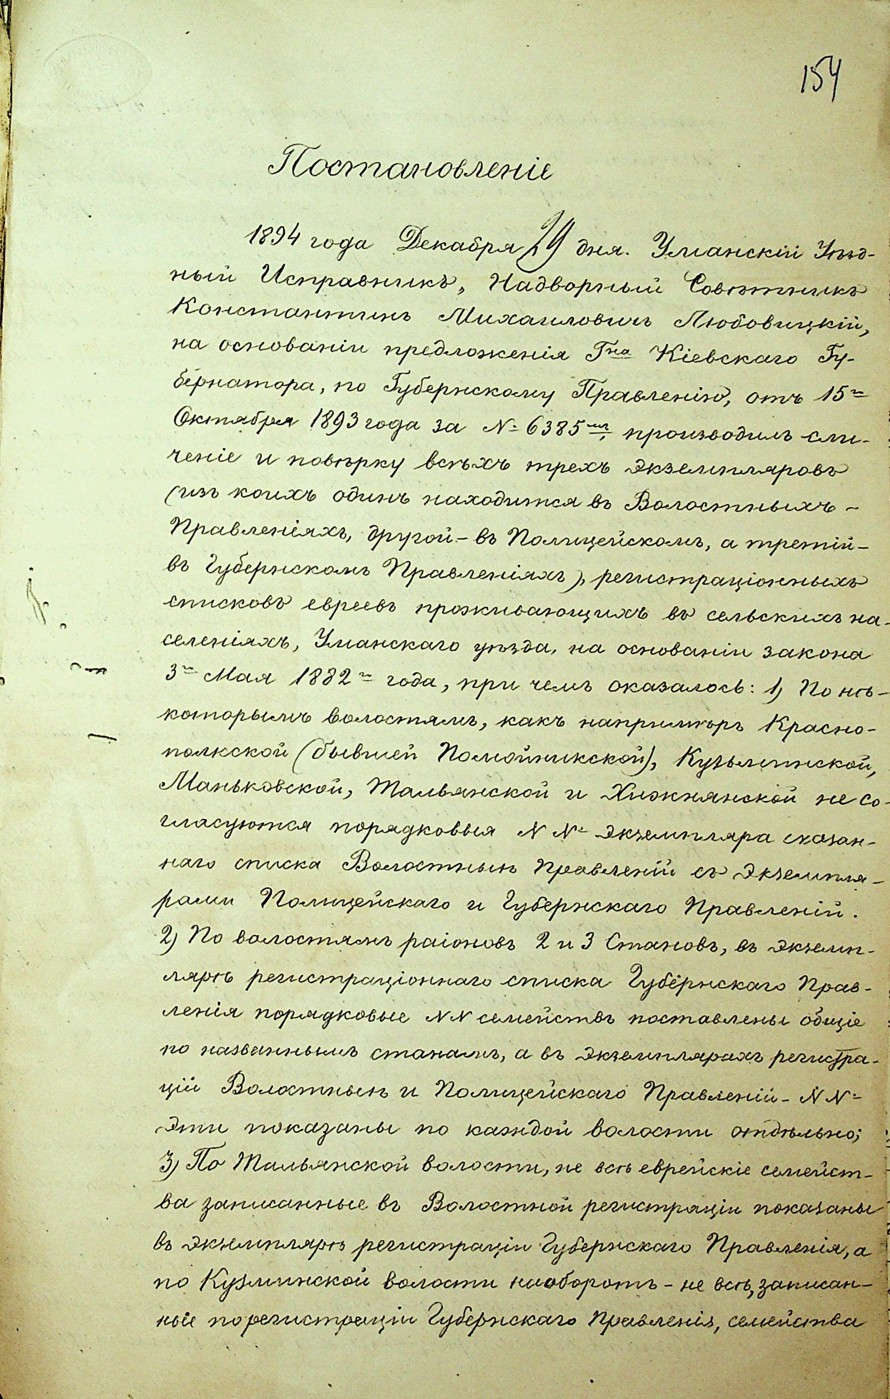 154
Постановленіе
1894 года Декабря 29 дня. Уманскій Уѣзд-
ный Исправникъ, Надворный Совѣтникъ
Константинъ Михаиловичъ Любовицкій,
на основаніи предложенія Гна Кіевскаго Гу-
бернатора, по Губернскому Правленію, отъ 15го
Октября 1893 года за № 6385мъ, производилъ сли-
ченіе и повѣрку всѣхъ трехъ экземпляровъ
(изъ коихъ одинъ находится въ Волостныхъ-
Правленіяхъ, другой - въ Полицейскомъ, а третій -
въ Губернскомъ Правленіяхъ), регистраціонныхъ
списковъ евреевъ проживающихъ въ сельскихъ на-
селеніяхъ, Уманскаго уѣзда, на основаніи закона
3го Мая 1882го года, при чемъ оказалось: 1) По нѣ-
которымъ волостямъ, какъ напримѣръ Красно-
полкской (бывшей Помойникской), Кузьминской,
Маньковской, Тальянской и Хижнянской не со-
гласуются порядковыя N№ экземпляра сказан-
наго списка Волостныхъ Правленій съ экземпля-
рами Полицейскаго и Губернскаго Правленій.
2) По волостямъ раіоновъ 2 и 3 Становъ, въ экземп-
лярѣ регистраціоннаго списка Губернскаго Прав-
ленія порядковые NN семействъ поставлены общіе
по названнымъ станамъ, а въ экземплярахъ регистра-
цій Волостныхъ и Полицейскаго Правленій - N№
эти показаны по каждой волости отдѣльно;
3) По Тальянской волости, не всѣ еврейскіе семейст-
ва записанные въ Волостной регистраціи показаны
въ экземплярѣ регистраціи Губернскаго Правленія, а
по Кузминской волости наоборотъ - не всѣ, записан-
ные по регистраціи Губернскаго Правленія, семейства